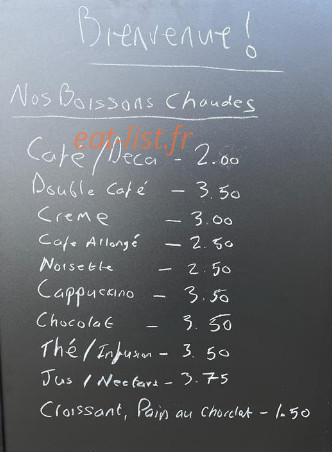 Bienvenue!
Nos Boissons Chaudes
eat-list.fr
Café/Deca - 2.00
Double Café - 3.50
Creme - 3.00
Cafe Allongé - 2.50
Noisette - 2.50
Cappuccino - 3.50
Chocolat - 3.50
Thé/Infusion - 3.50
Jus/Nectars - 3.75
Croissant, Pain au Chocolat - 1.50